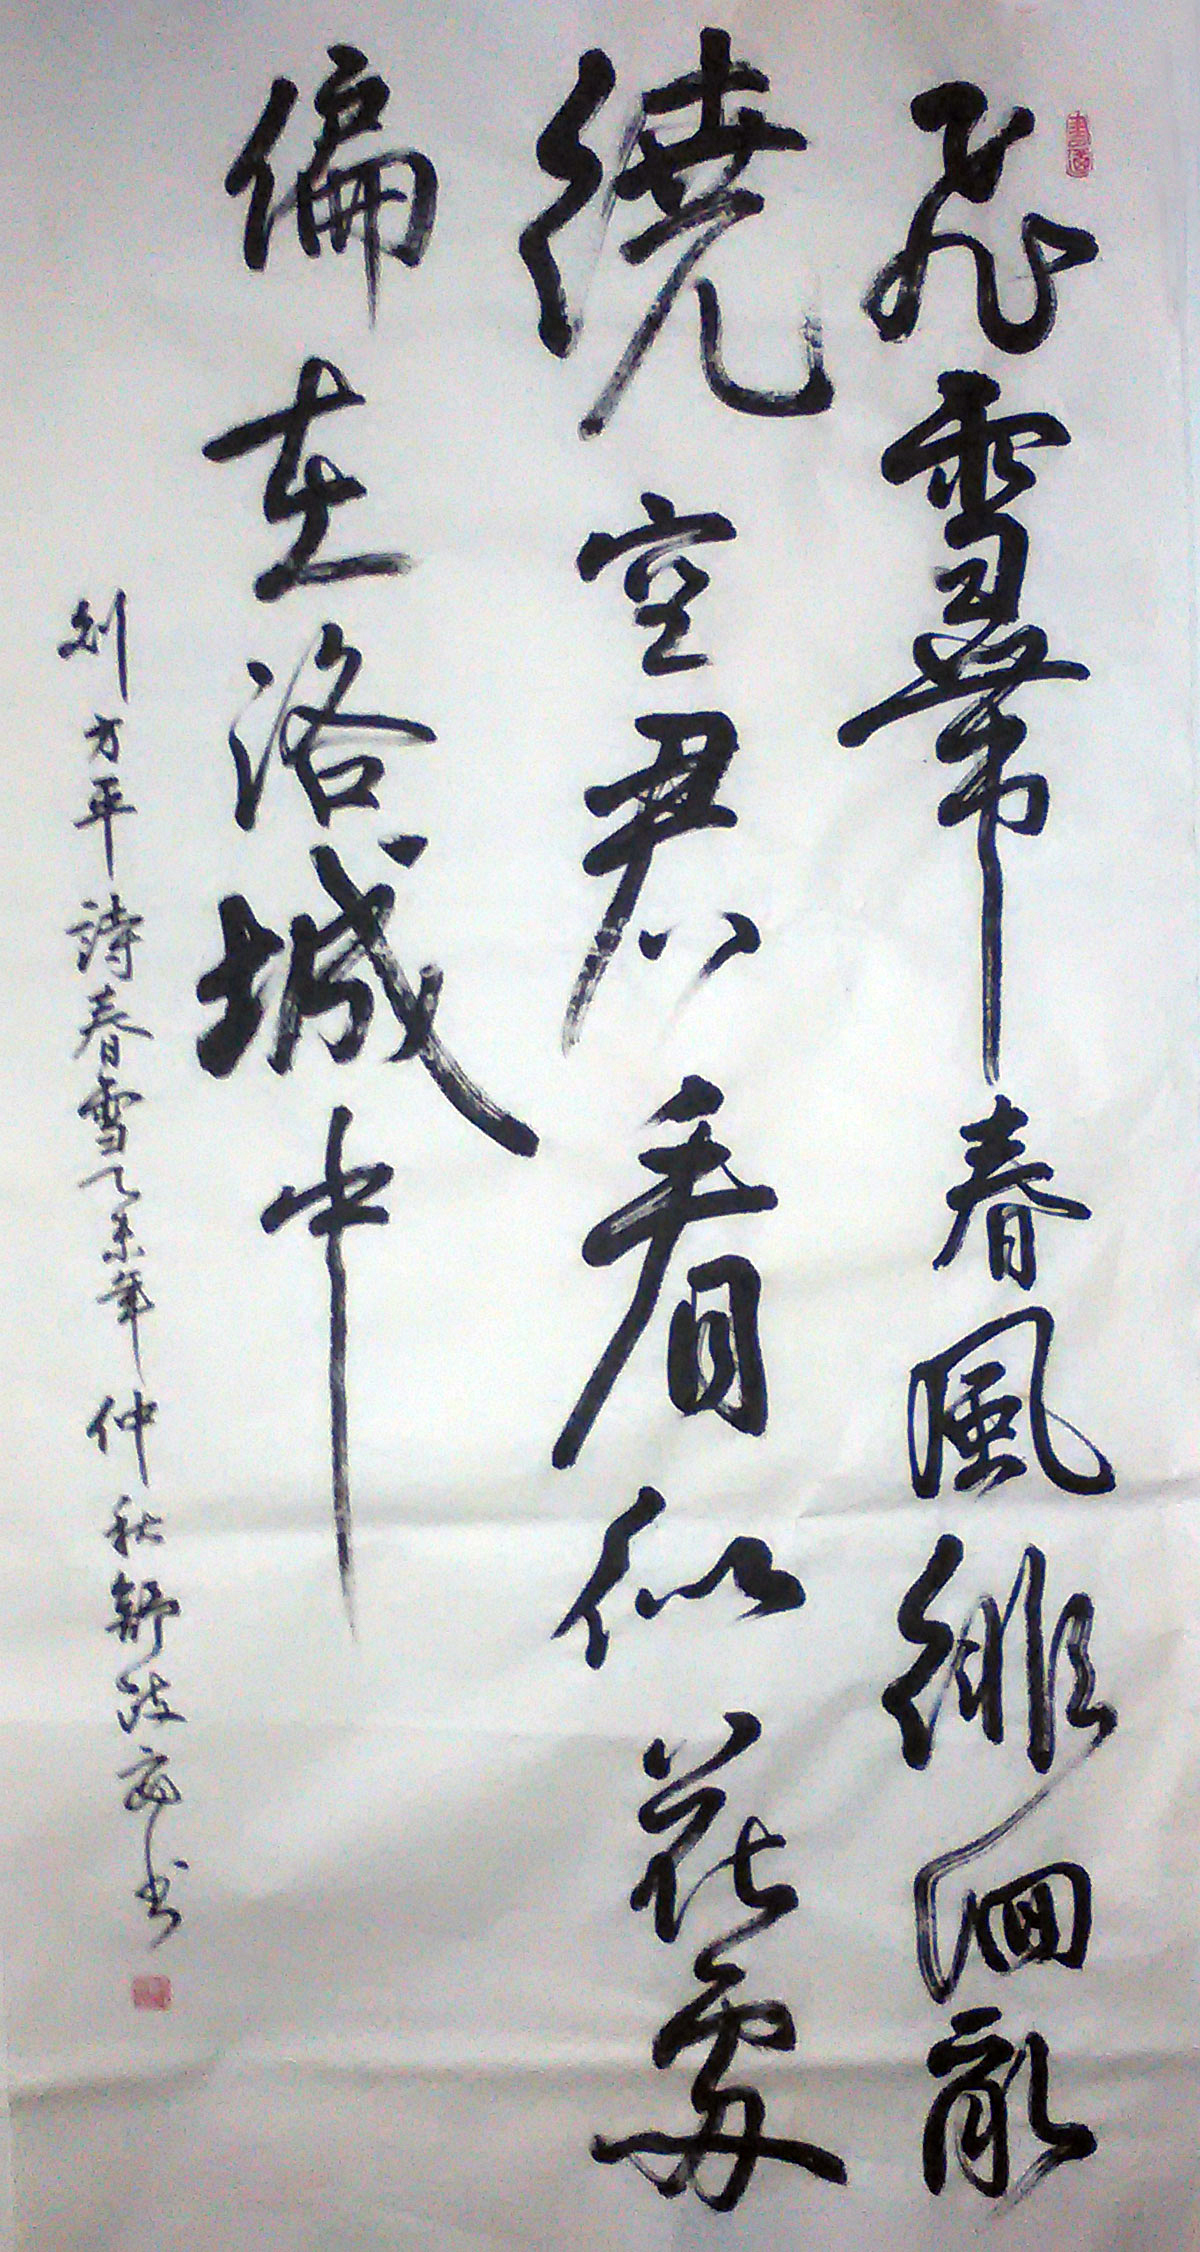 飛雪帶春風徘徊亂
繞空君看似花處
偏在洛城中
刘方平詩春雪乙未年仲秋舒书